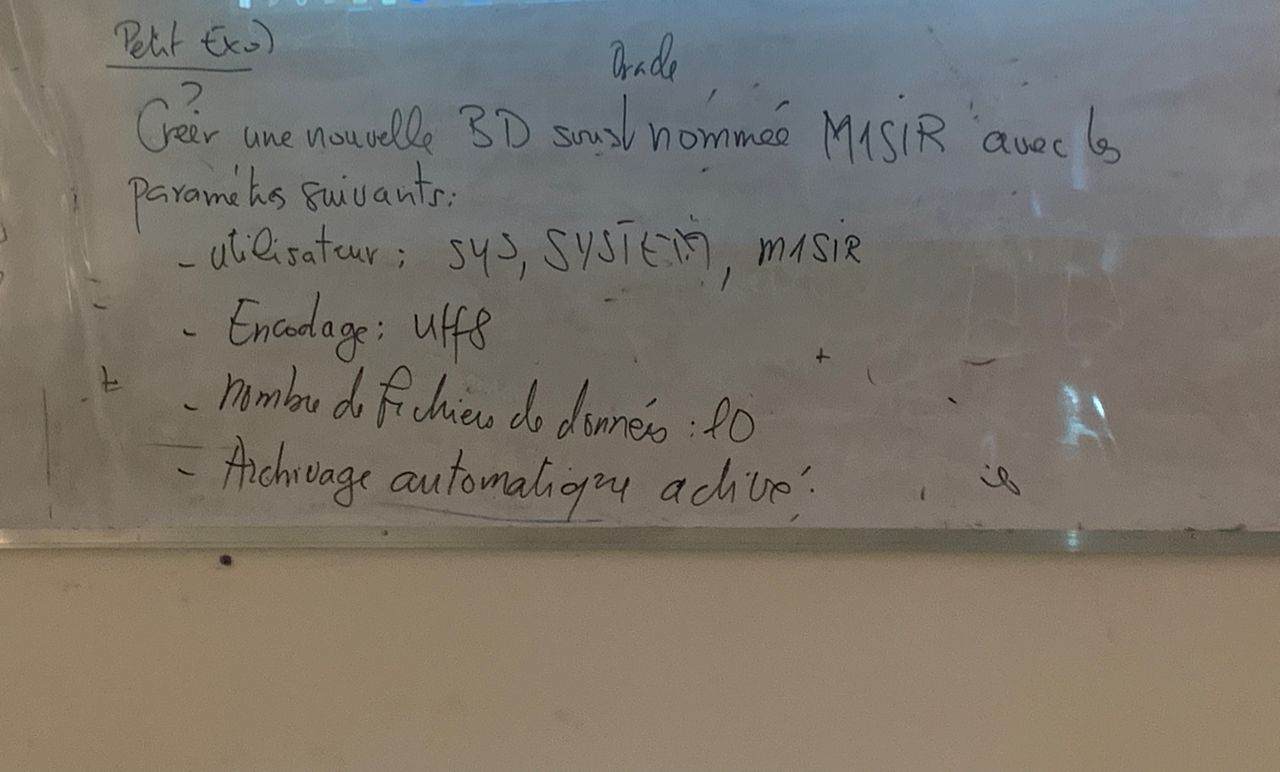 Petit Exo)
Oracle
Créer une nouvelle BD sous nommée M1SIR avec les
paramètres suivants:
- utilisateur: SYS, SYSTEM, M1SIR
- Encodage: Utf8
- nombre de fichiers de données: 10
- Archivage automatique activé.